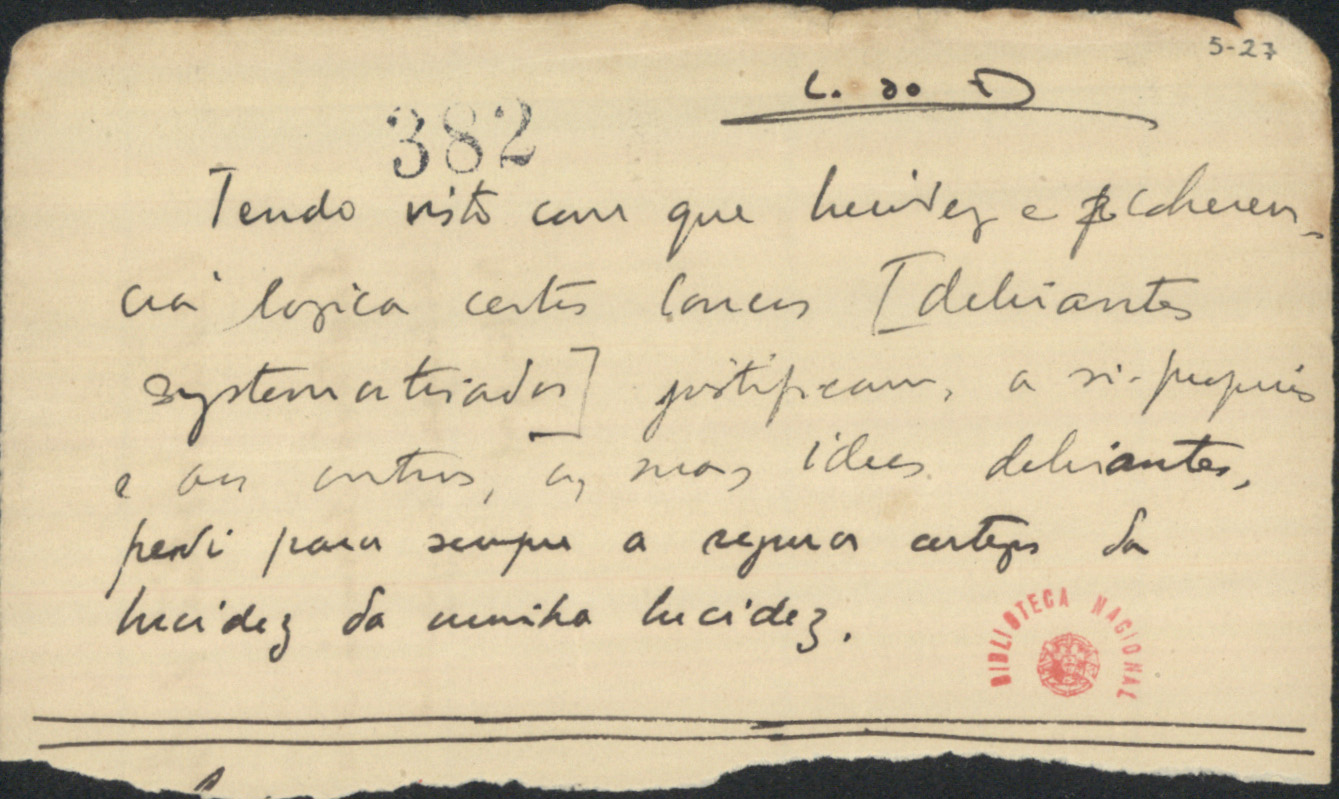 5-27
L. do D
382
Tendo visto com que lucidez e coheren-
cia logica certos loucos [delirantes
systematisados] justificam, a si-proprios
e aos outros, as suas ideas delirantes,
perdi para sempre a segura certeza da
lucidez da minha lucidez.
BIBLIOTECA NACIONAL